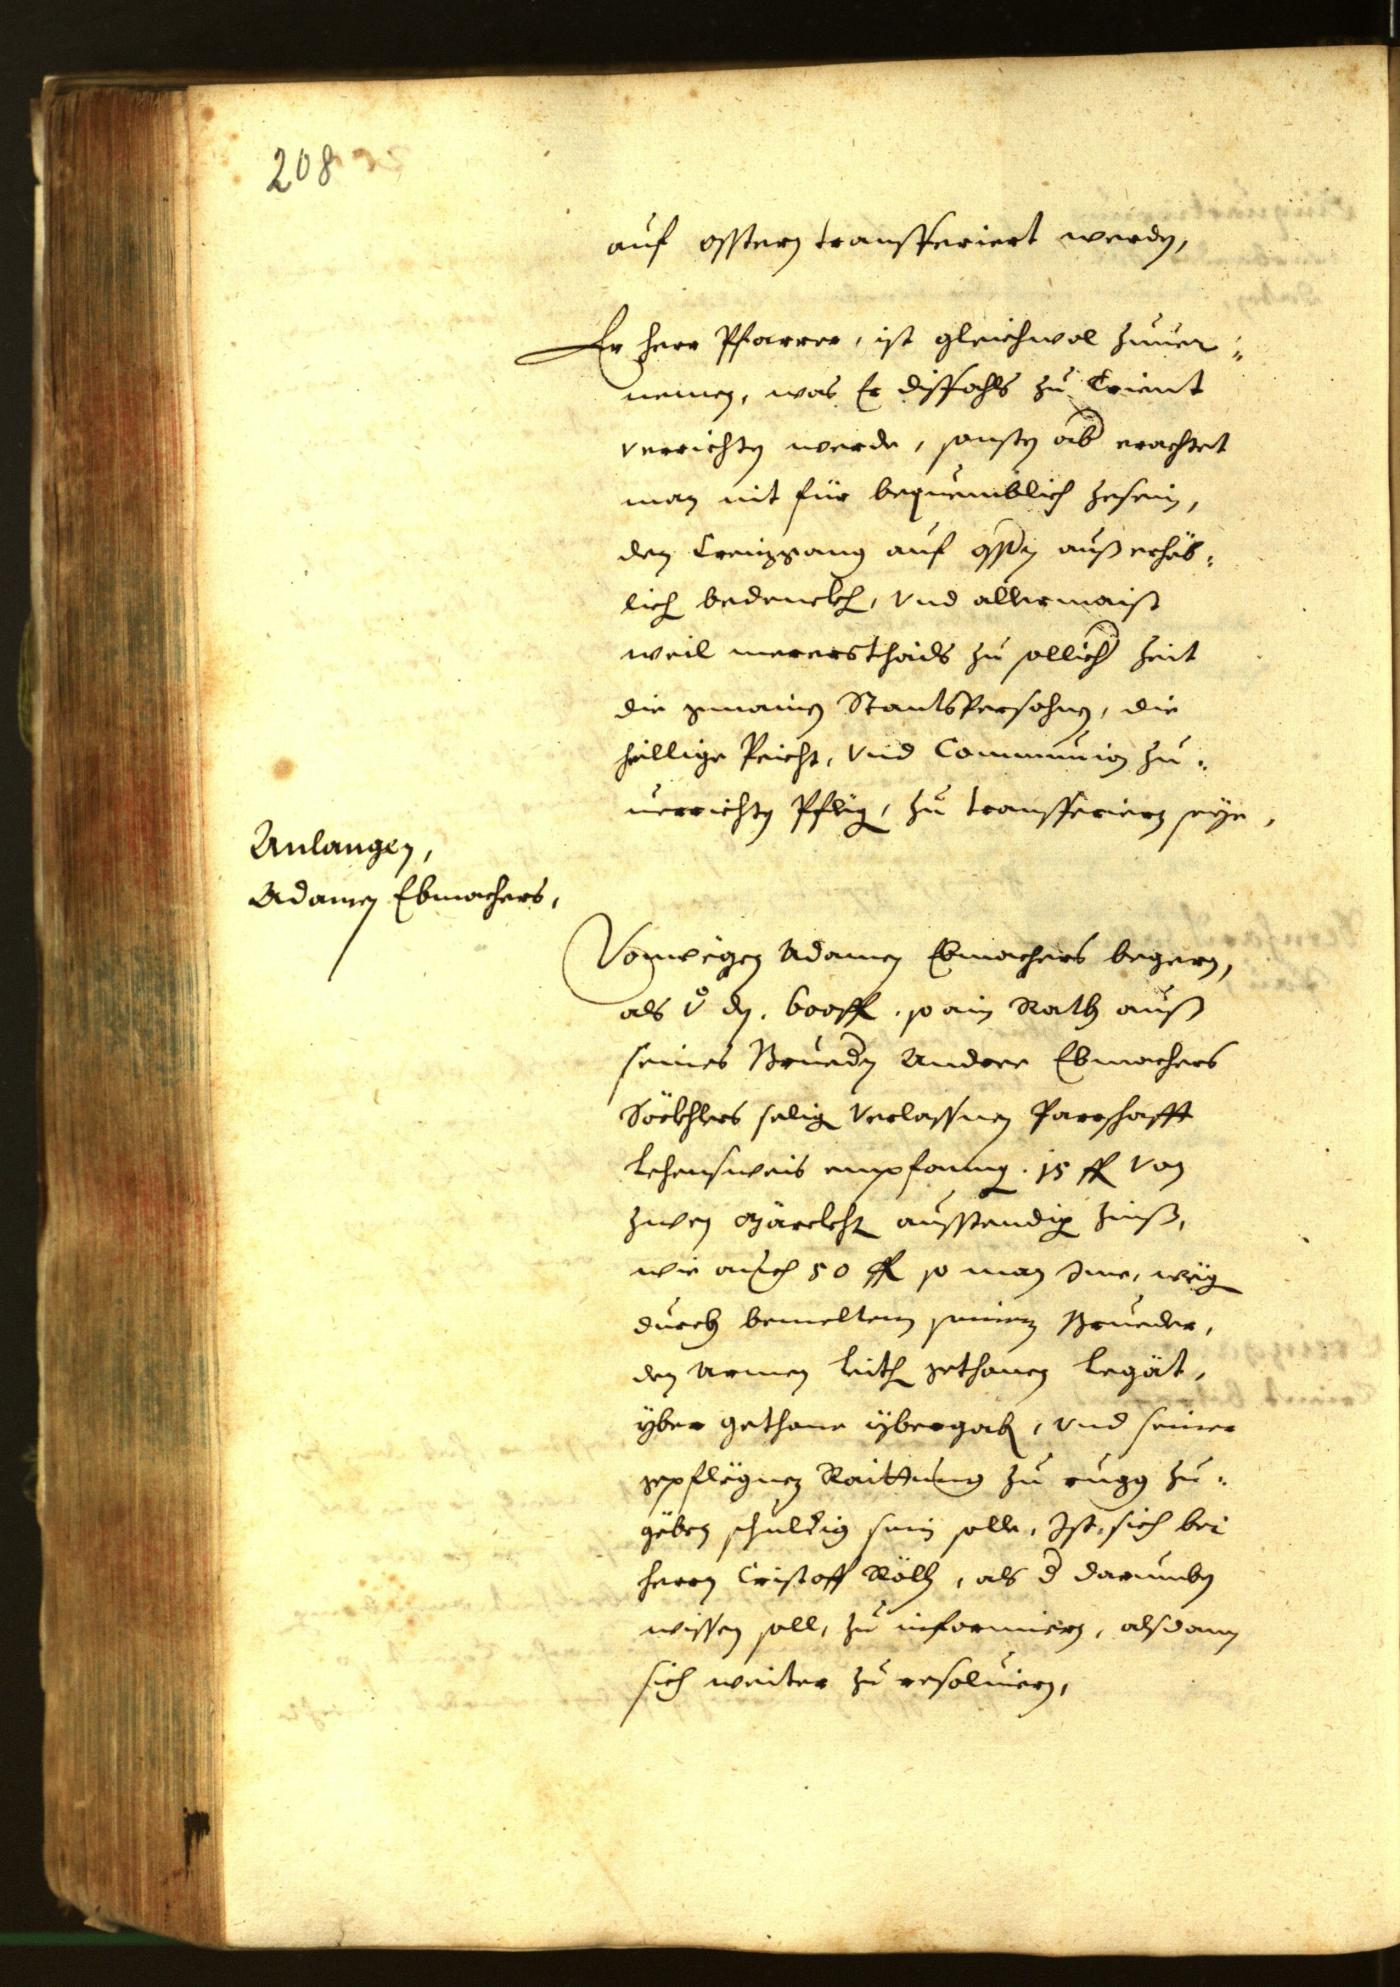 208
auf osstern transfferiert werden,
Er herr Pfarrer, ist gleichwol zuuer¬
nemen, was Er dissfahls zu Trient
verrichten werde, sonsten aber erachtet
man nit für bequemblich zesein,
den Creuzgang auf ossten auß erheb¬
lich bedenckh, Vnd allermaist
weil mererstheils zu sollicher Zeit
die gmainen StantsPersohnen, die
heillige Peicht, Vnd Communion zu¬
uerrichten Pflegen, zu transfferiern seye,
Anlangen,
Adamen Ebmachers,
Vonwegen Adamen Ebmachers begern,
als Vo den. 600 fl. so ain Rath auß
seines Brueder Andree Ebmachers
selig Verlassnen Parschafft
lehensweis empfangen. 15 fl Von
zwen Märckht ausstendigen Zinß,
wie auch 50 fl so man Ime, wegen
durch bemeltem seinem Brueder,
den Armen leith gethonen Legat,
yber gethone ybergab, Vnd seiner
gepflegnen Raittung zu rugg zu¬
geben schuldig sein solle, Ist, sich bei
herrn Cristoff Röll, als der darumben
wissen soll, zu informiern, alsdann
sich weiter zu resoluiern,